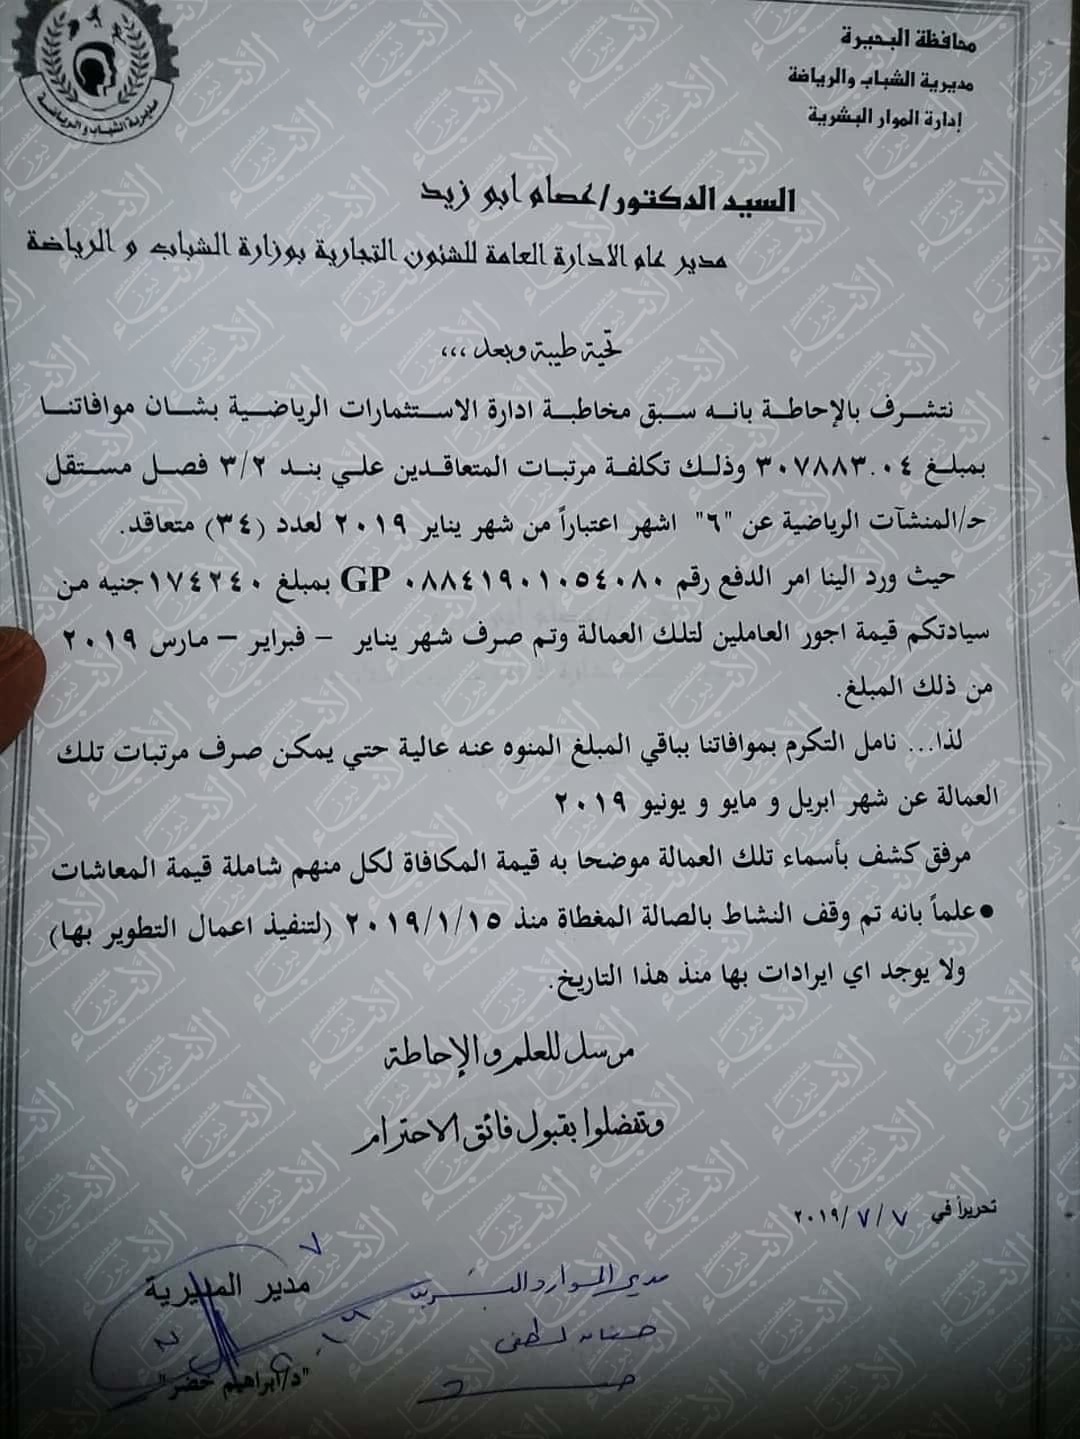 محافظة البحيرة
مديرية الشباب والرياضة
إدارة الموار البشرية
مديرية الشباب والرياضة
السيد الدكتور/عصام ابو زيد
مدير عام الادارة العامة للشئون التجارية بوزارة الشباب و الرياضة
تحية طيبة وبعد ،،،
نتشرف بالإحاطة بانه سبق مخاطبة ادارة الاستثمارات الرياضية بشان موافاتنا
بمبلغ ٣٠٧٨٨٣.٠٤ وذلك تكلفة مرتبات المتعاقدين علي بند ٣/٢ فصل مستقل
حـ/المنشآت الرياضية عن "٦" اشهر اعتباراً من شهر يناير ٢٠١٩ لعدد (٣٤) متعاقد.
حيث ورد الينا امر الدفع رقم ٠٨٨٤١٩٠١٠٥٤٠٨٠ GP بمبلغ ١٧٤٢٤٠جنيه من
سيادتكم قيمة اجور العاملين لتلك العمالة وتم صرف شهر يناير – فبراير – مارس ٢٠١٩
من ذلك المبلغ.
لذا... نامل التكرم بموافاتنا بباقي المبلغ المنوه عنه عالية حتي يمكن صرف مرتبات تلك
العمالة عن شهر ابريل و مايو و يونيو ٢٠١٩
مرفق كشف بأسماء تلك العمالة موضحا به قيمة المكافاة لكل منهم شاملة قيمة المعاشات
•علماً بانه تم وقف النشاط بالصالة المغطاة منذ ٢٠١٩/١/١٥ (لتنفيذ اعمال التطوير بها)
ولا يوجد اي ايرادات بها منذ هذا التاريخ.
مرسل للعلم والإحاطة
وتفضلوا بقبول فائق الاحترام
تحريراً في ٧ /٧ /٢٠١٩
مدير الموارد البشرية
لطفى
مدير المديرية
"د/ابراهيم خضر"
الأنباء نيوز